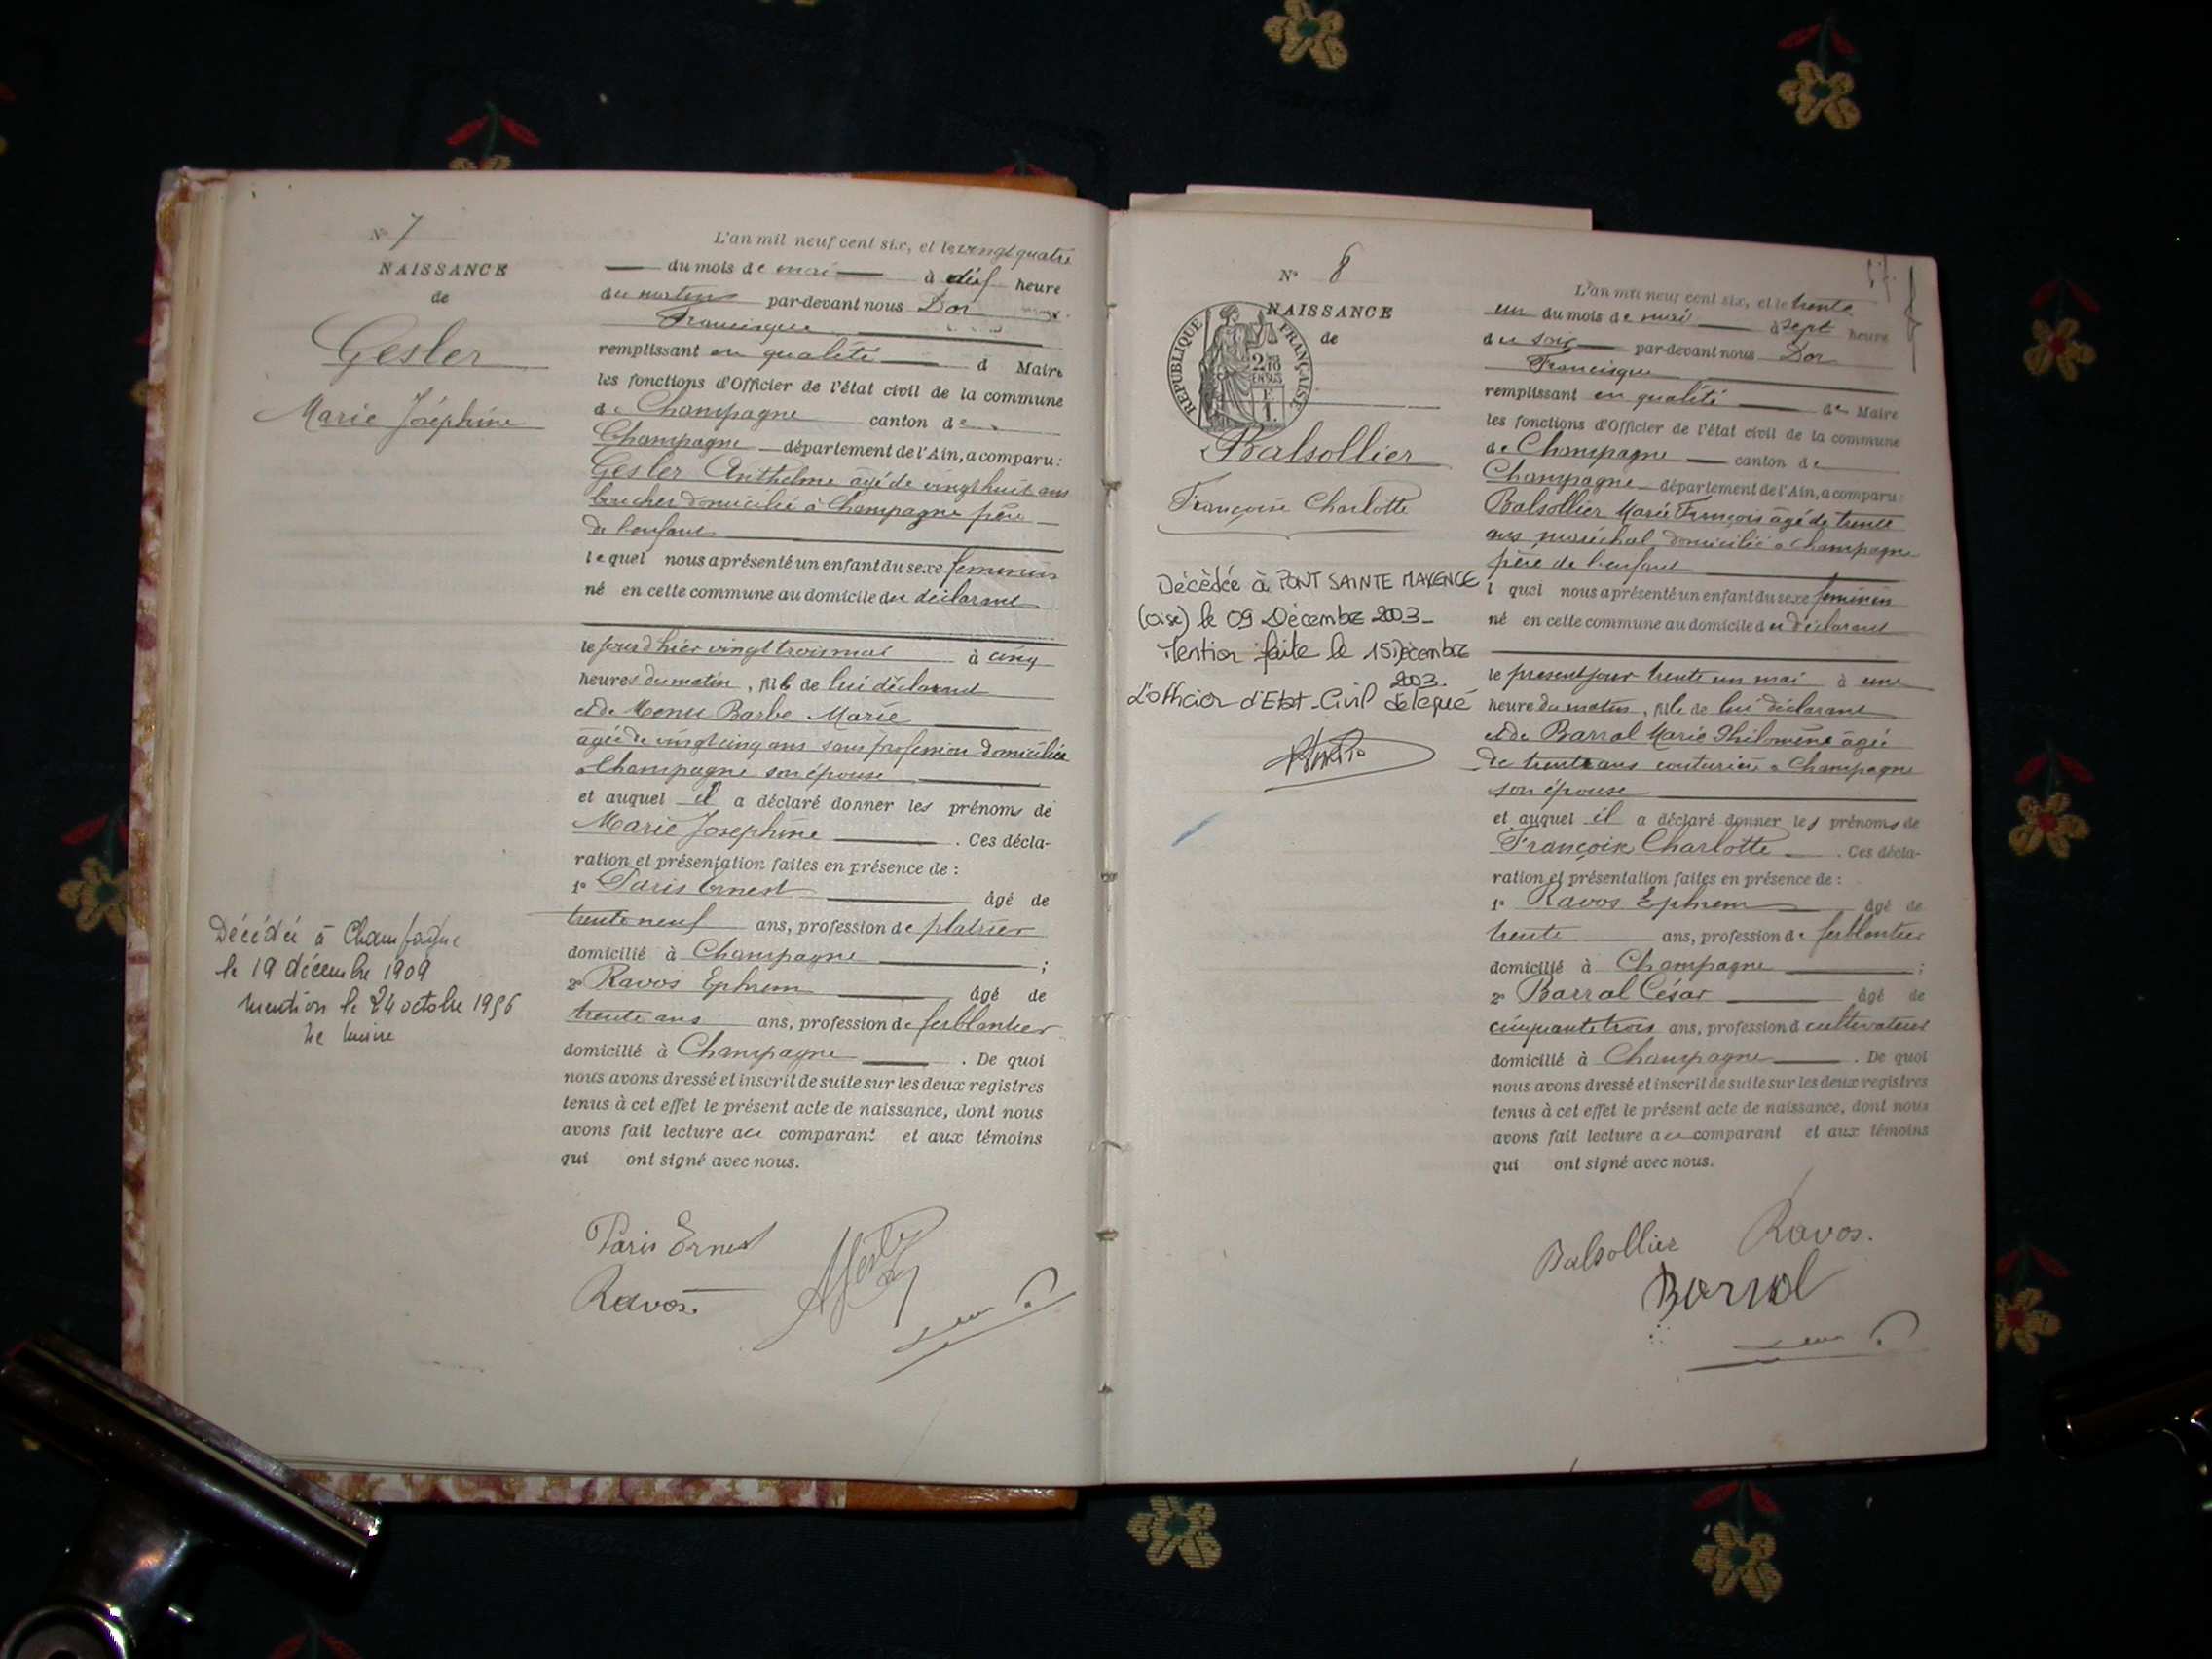 N° 7
NAISSANCE
de
Gesler
Marie Joséphine
Décédée à Champagne
le 19 décembre 1909
Mention le 24 octobre 1956
Le Maire
L'an mil neuf cent six, et le vingt quatre
du mois de mai à heure
du matin par-devant nous Dor
Francisque
remplissant en qualité d Maire
les fonctions d'Officier de l'état civil de la commune
de Champagne canton de
Champagne département de l'Ain, a comparu :
Gesler Anthelme agé de vingt huit ans
boucher domicilié à Champagne père
de l'enfant
lequel nous a présenté un enfant du sexe feminin
né en cette commune au domicile du déclarant
le jour d'hier vingt trois mai à cinq
heures du matin, fille de lui déclarant
et de Menu Barbe Marie
agée de vingt cinq ans sans profession domiciliée
à Champagne son épouse
et auquel il a déclaré donner les prénoms de
Marie Josephine . Ces décla-
ration et présentation faites en présence de :
1° Paris Ernest âgé de
trente neuf ans, profession de platrier
domicilié à Champagne ;
2° Ravos Ephrem âgé de
trente ans ans, profession de ferblantier
domicilié à Champagne . De quoi
nous avons dressé et inscrit de suite sur les deux registres
tenus à cet effet le présent acte de naissance, dont nous
avons fait lecture au comparant et aux témoins
qui ont signé avec nous.
Paris Ernest
Ravos
N° 8
NAISSANCE
de
REPUBLIQUE FRANÇAISE
Balsollier
Françoise Charlotte
Décèdée à PONT SAINTE MAXENCE
(oise) le 09 Décembre 2003_
Mention faite le 15 Décembre
2003.
L'officier d'Etat-Civil délégué
L'an mil neuf cent six, et le trente
un du mois de mai à sept heure
du soir par-devant nous Dor
Francisque
remplissant en qualité de Maire
les fonctions d'Officier de l'état civil de la commune
de Champagne canton de
Champagne département de l'Ain, a comparu :
Balsollier Marie François âgé de trente
ans maréchal domicilié à Champagne
père de l'enfant
l quel nous a présenté un enfant du sexe feminin
né en cette commune au domicile du déclarant
le présent jour trente un mai à une
heure du matin, fille de lui déclarant
et de Barral Marie Philomène âgée
de trente ans couturière à Champagne
son épouse
et auquel il a déclaré donner les prénoms de
Françoise Charlotte . Ces décla-
ration et présentation faites en présence de :
1° Ravos Ephrem âgé de
trente ans, profession de ferblantier
domicilié à Champagne ;
2° Barral César âgé de
cinquante trois ans, profession d cultivateur
domicilié à Champagne . De quoi
nous avons dressé et inscrit de suite sur les deux registres
tenus à cet effet le présent acte de naissance, dont nous
avons fait lecture au comparant et aux témoins
qui ont signé avec nous.
Balsollier Ravos.
Barral